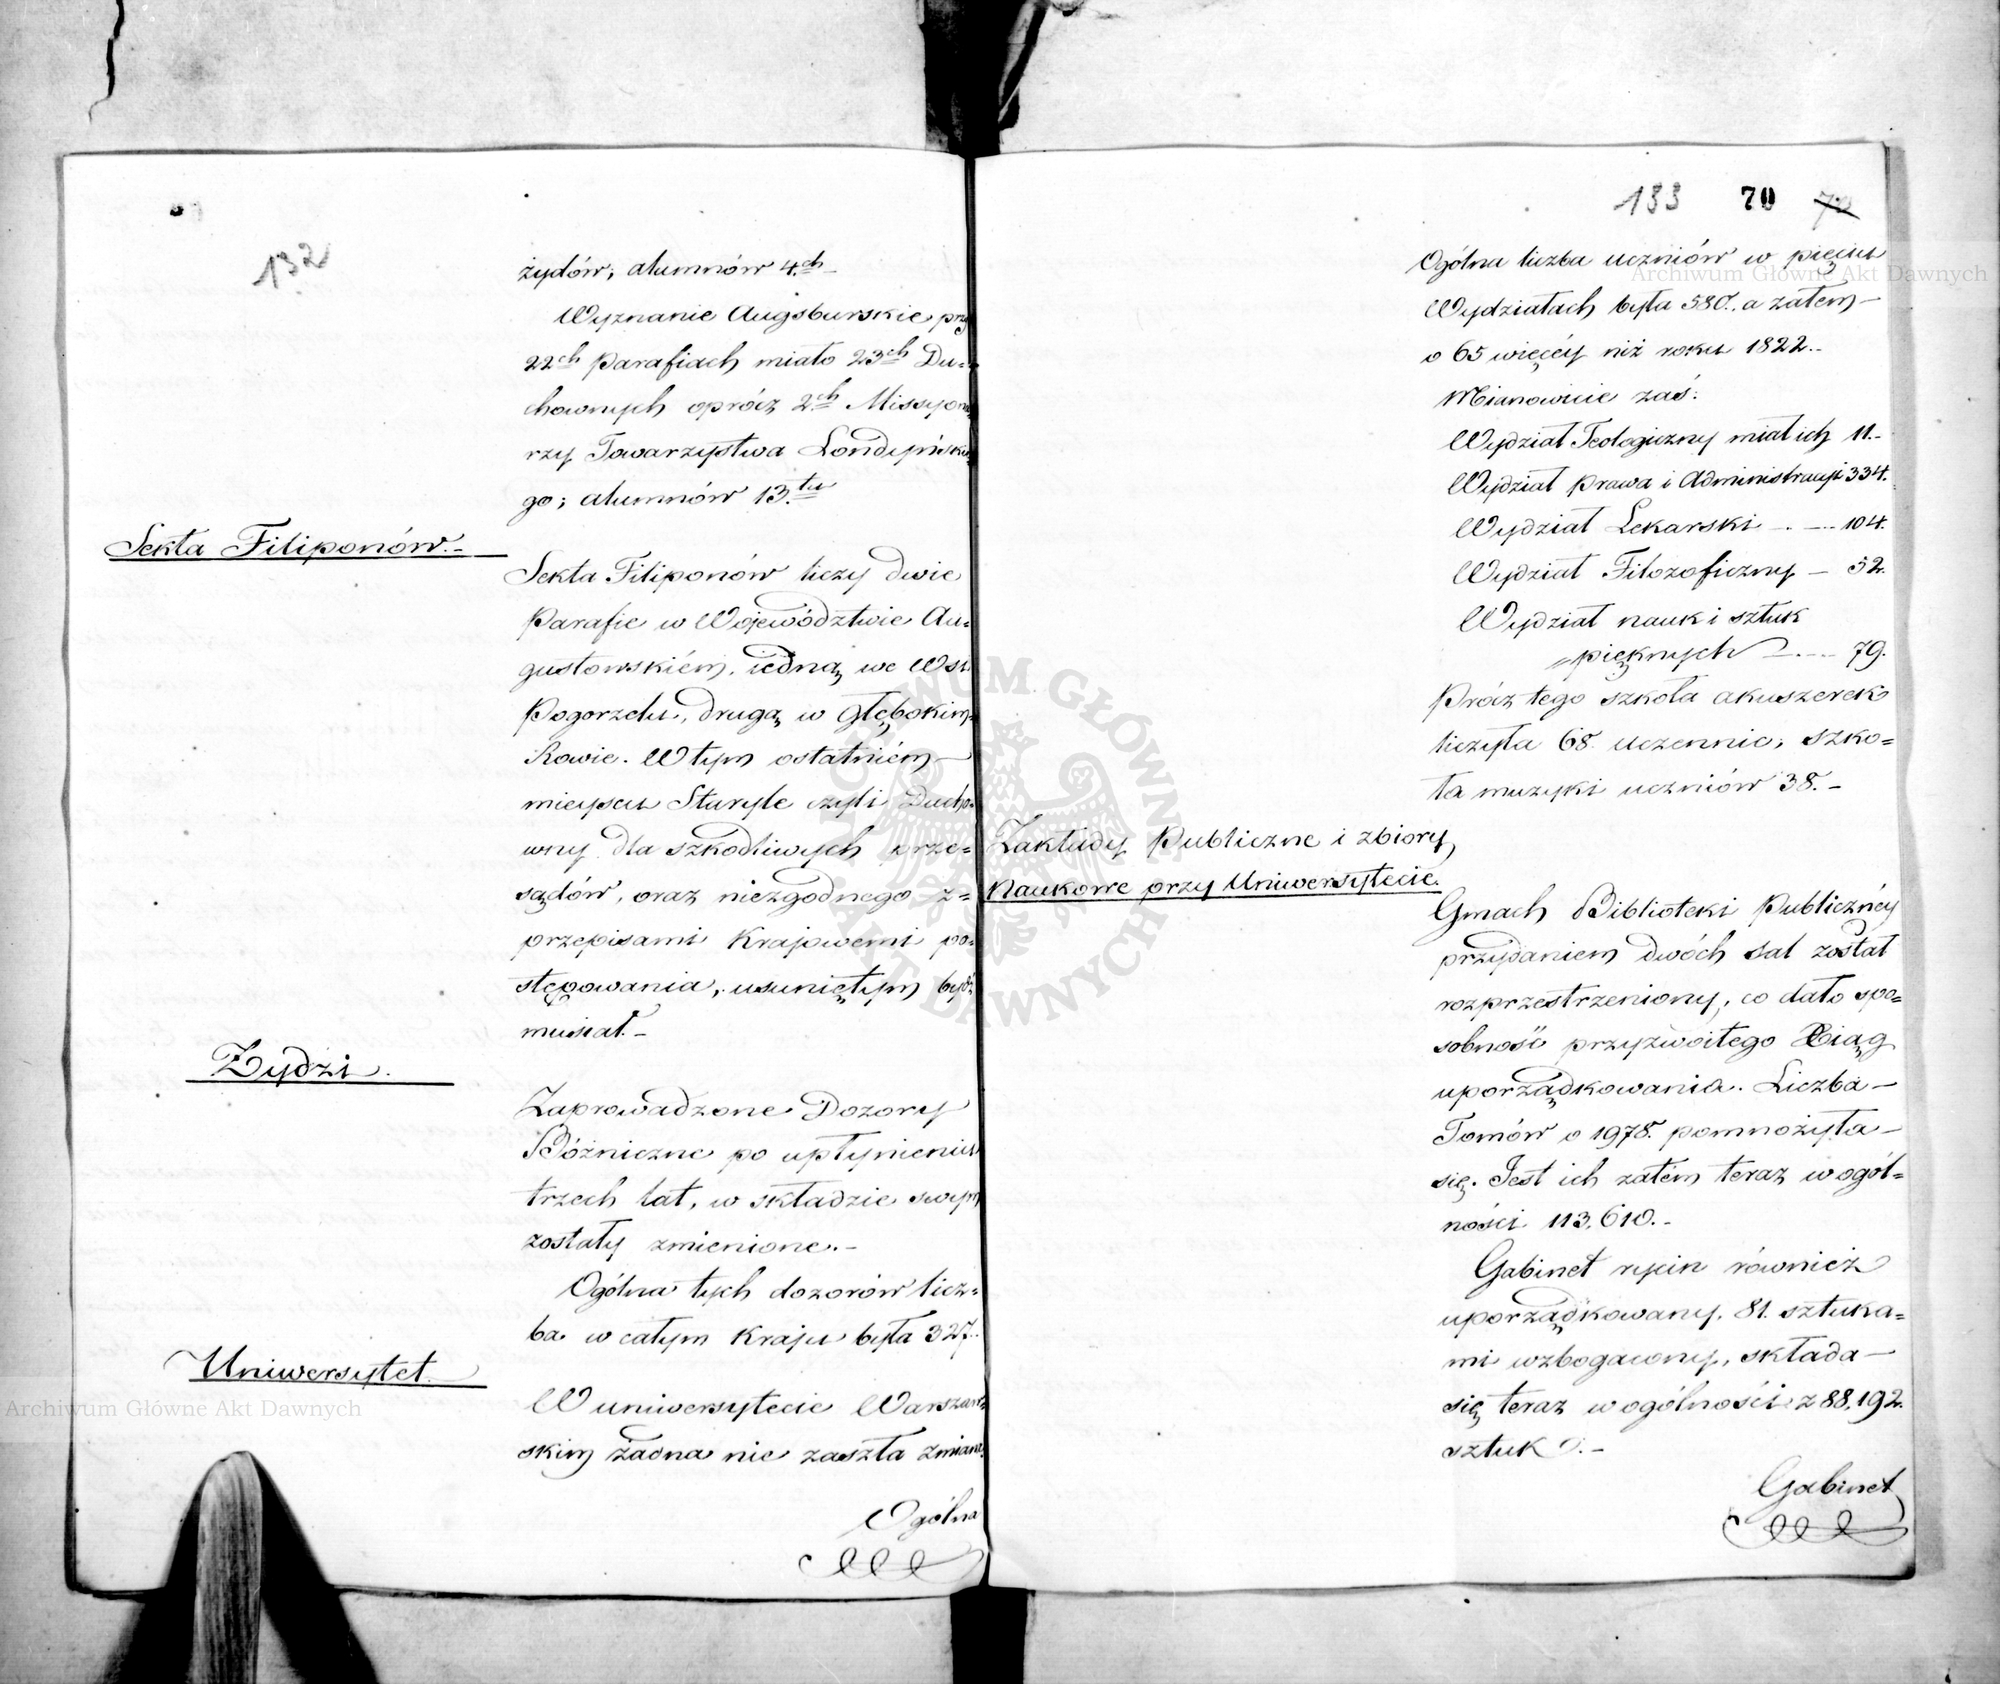 132
żydów; alumnów 4.ch
Wyznanie Augsburskie przy
22ch Parafiach miało 23ch Du-
chownych oprócz 2.ch Missyona
rzy Towarzystwa Londyńskie
go; alumnów 13.tu
Sekta Filiponów.
Sekta Filiponów liczy dwie
Parafie w Województwie Au=
gustowskiém, iedną we Wsi
Pogorzelu, drugą w Głębokim
Rowie. W tym ostatniém
mieyscu Staryk czyli Ducho=
wny dla szkodliwych prze=
sądów, oraz niezgodnego z=
przepisami Kraiowemi po=
stępowania, usuniętym bydź
musiał.
Żydzi.
Zaprowadzone Dozory
Bóżnicze po upłynieniu
trzech lat, w składzie swym
zostały zmienione.
Ogólna tych dozorów licz=
ba w całym Kraju była 327.
Uniwersytet.
W uniwersytecie Warszaw
skim żadna nie zaszła zmiana.
Ogólna
133 70 70
Ogólna liczba uczniów w pięciu
Wydziałach była 580., a zatem
o 65 więcéy niż roku 1822.
Mianowicie zaś:
Wydział Teologiczny miał ich 11.
Wydział Prawa i Administracyi 334.
Wydział Lekarski 104.
Wydział Filozoficzny 52.
Wydział nauk i sztuk
pięknych 79.
Prócz tego szkoła akuszerek
liczyła 68. uczennic, szko=
ła muzyki uczniów 38.
Zakłady Publiczne i zbiory
Naukowe przy Uniwersytecie.
Gmach Biblioteki Publicznéy
przydaniem dwóch sal został
rozprzestrzeniony, co dało spo=
sobność przyzwoitego Xiąg
uporządkowania. Liczba
Tomów o 1978. pomnożyła
się. Jest ich zatém teraz w ogól=
ności 113,610.
Gabinet rycin również
uporządkowany, 81. sztuka=
mi wzbogacony, składa
się teraz w ogólności z 88,192.
sztuk.
Gabinet
Archiwum Główne Akt Dawnych
Archiwum Główne Akt Dawnych
ARCHIWUM GŁÓWNE AKT DAWNYCH